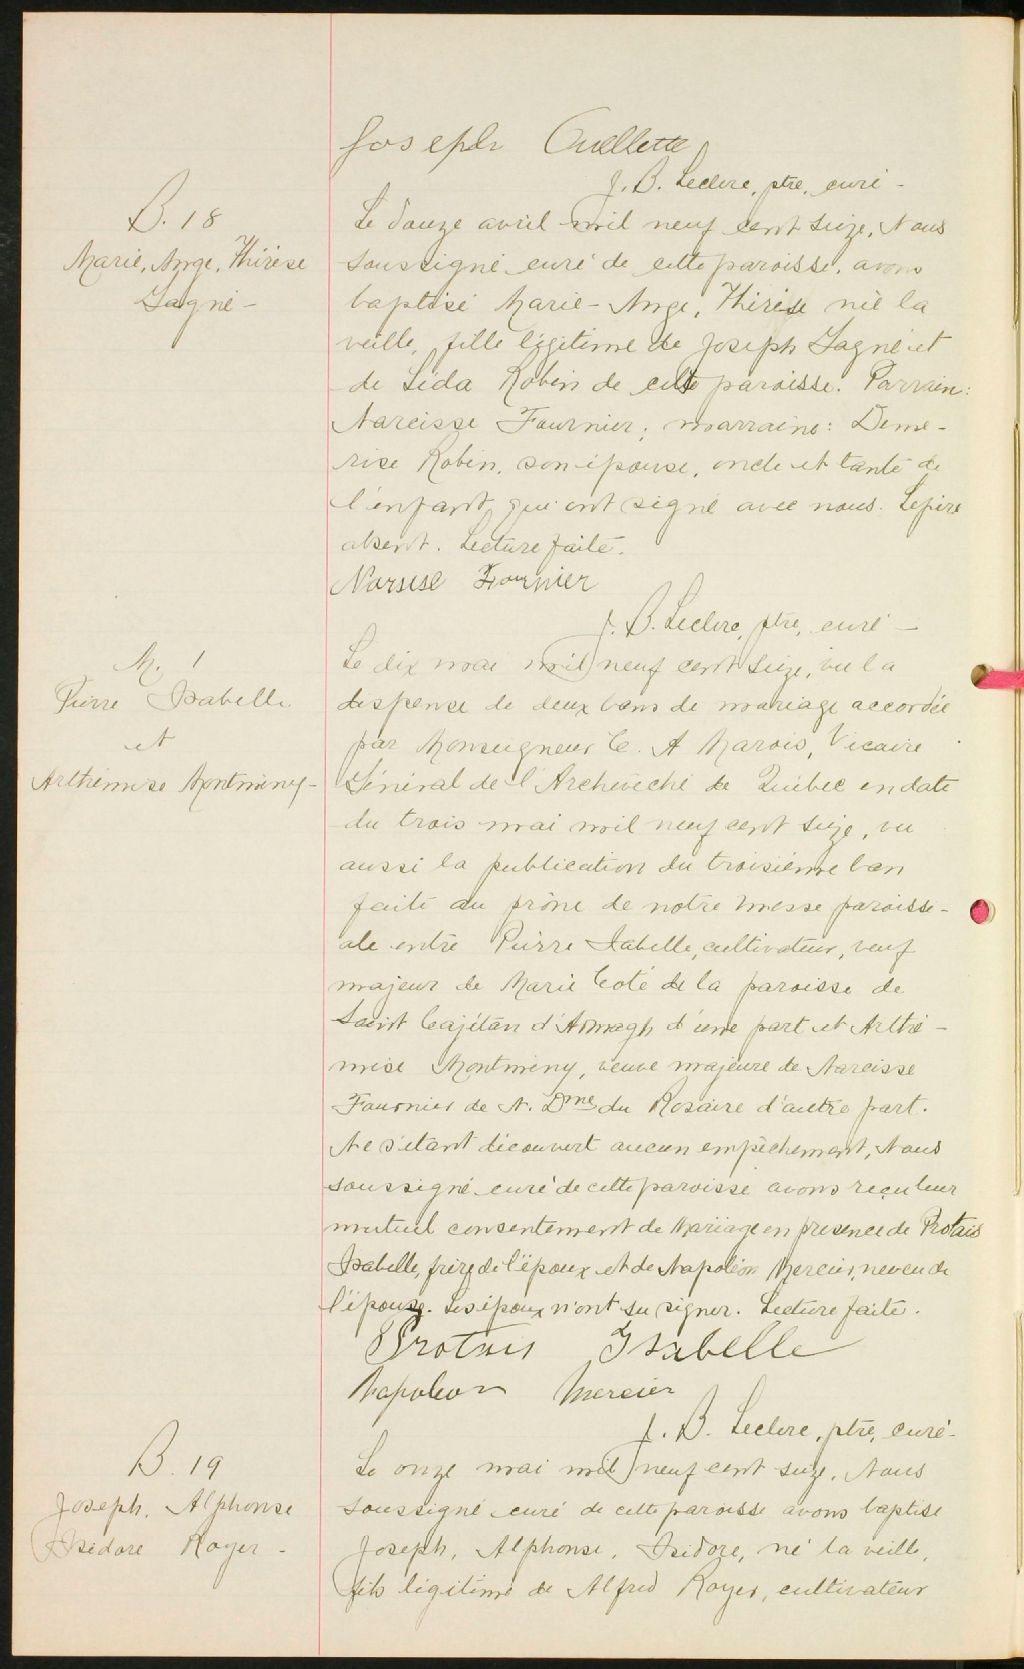 Joseph Ouellette
J. B. Leclerc, ptre, curé -
B. 18
Marie, Ange, Thérèse
Gagné -
Le douze avril mil neuf cent seize, Nous
soussigné curé de cette paroisse, avons
baptisé Marie-Ange, Thérèse née la
veille, fille légitime de Joseph Gagné et
de Léda Robin de cette paroisse. Parrain:
Narcisse Fournier; marraine: Deme-
rise Robin, son épouse, oncle et tante de
l'enfant, qui ont signé avec nous. Le père
absent. Lecture faite.
Narsise Fournier
J. B. Leclerc, ptre, curé -
M. 1
Pierre Isabelle
et
Arthémise Montminy -
Le dix mai mil neuf cent seize, vu la
dispense de deux bans de mariage accordée
par Monseigneur C. A Marois, Vicaire
Général de l'Archevêché de Québec en date
du trois mai mil neuf cent seize, vu
aussi la publication du troisième ban
faite au prône de notre messe paroissi-
ale entre Pierre Isabelle, cultivateur, veuf
majeur de Marie Coté de la paroisse de
Saint Cajétan d'Armagh d'une part et Arthé-
mise Montminy, veuve majeure de Narcisse
Fournier de N. Dme du Rosaire d'autre part.
Ne s'étant découvert aucun empêchement, Nous
soussigné curé de cette paroisse avons reçu leur
mutuel consentement de Mariage en présence de Protais
Isabelle, frère de l'époux et de Napoléon Mercier, neveu de
l'épouse. Les époux n'ont su signer. Lecture faite.
Protais Isabelle
Napoleon Mercier
J. B. Leclerc, ptre, curé -
B. 19
Joseph, Alphonse
Isidore Royer -
Le onze mai mil neuf cent seize, Nous
soussigné curé de cette paroisse avons baptisé
Joseph, Alphonse, Isidore, né la veille,
fils légitime de Alfred Royer, cultivateur